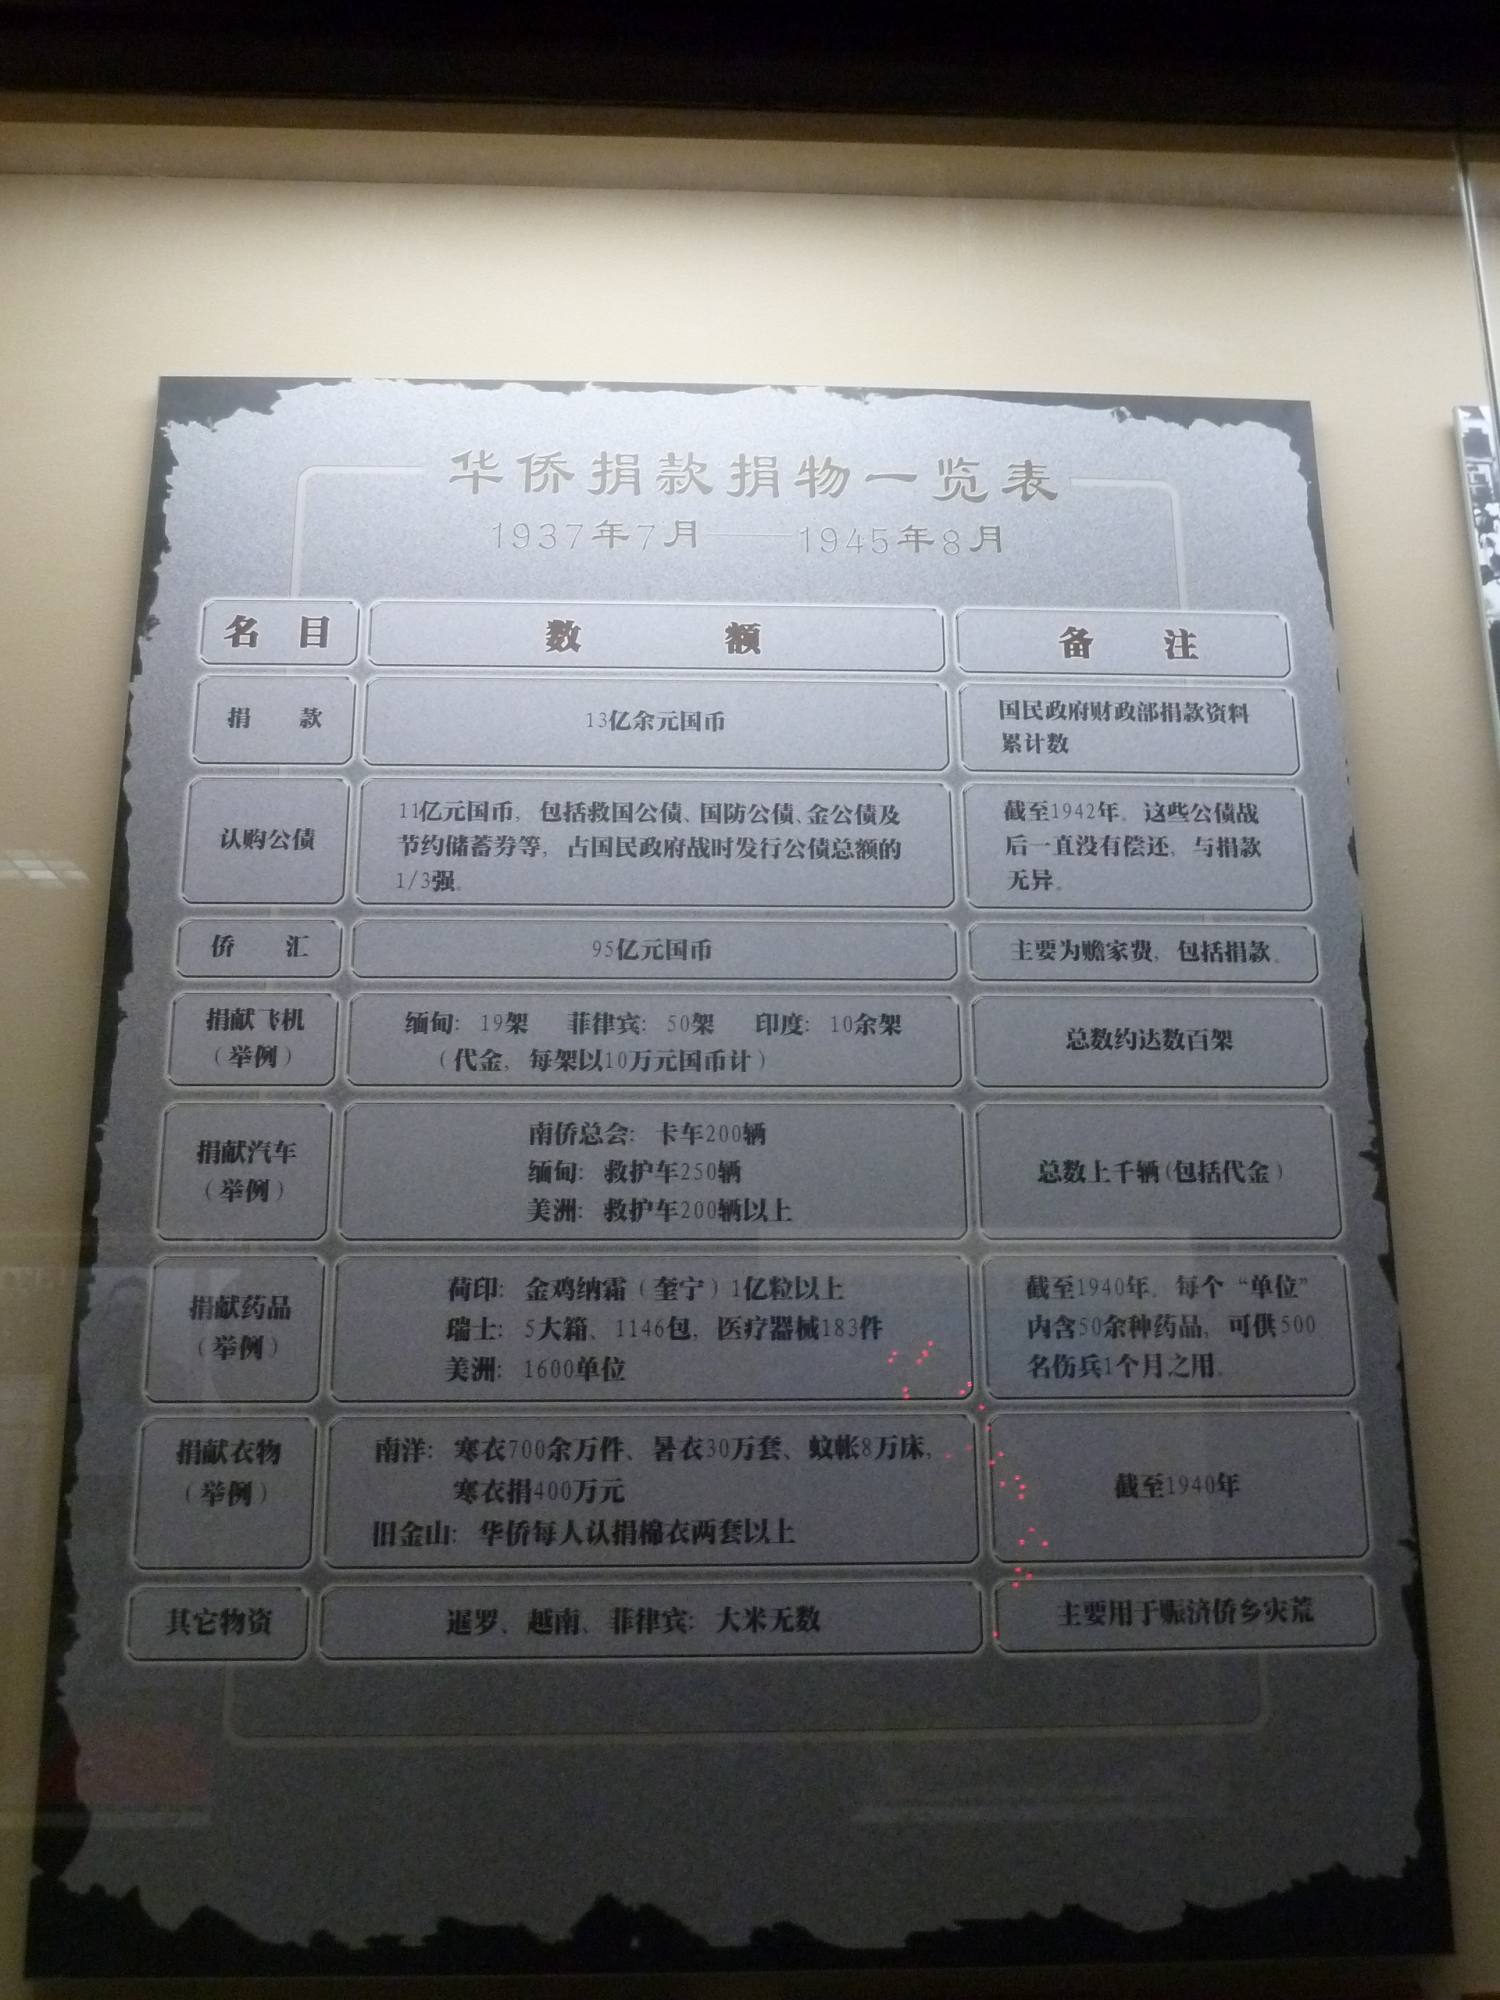 华侨捐款捐物一览表
1937年7月——1945年8月
名 目 数 额 备 注
捐 款
13亿余元国币
国民政府财政部捐款资料
累计数
认购公债
11亿元国币，包括救国公债、国防公债、金公债及
节约储蓄券等，占国民政府战时发行公债总额的
1/3强。
截至1942年。这些公债战
后一直没有偿还，与捐款
无异。
侨 汇
95亿元国币
主要为赡家费，包括捐款。
捐献飞机
（举例）
缅甸：19架 菲律宾：50架 印度：10余架
（代金，每架以10万元国币计）
总数约达数百架
捐献汽车
（举例）
南侨总会：卡车200辆
缅甸：救护车250辆
美洲：救护车200辆以上
总数上千辆(包括代金）
捐献药品
（举例）
荷印：金鸡纳霜（奎宁）1亿粒以上
瑞士：5大箱、1146包，医疗器械183件
美洲：1600单位
截至1940年。每个“单位”
内含50余种药品，可供500
名伤兵1个月之用。
捐献衣物
（举例）
南洋：寒衣700余万件、暑衣30万套、蚊帐8万床，
寒衣捐400万元
旧金山：华侨每人认捐棉衣两套以上
截至1940年
其它物资
暹罗、越南、菲律宾：大米无数
主要用于赈济侨乡灾荒